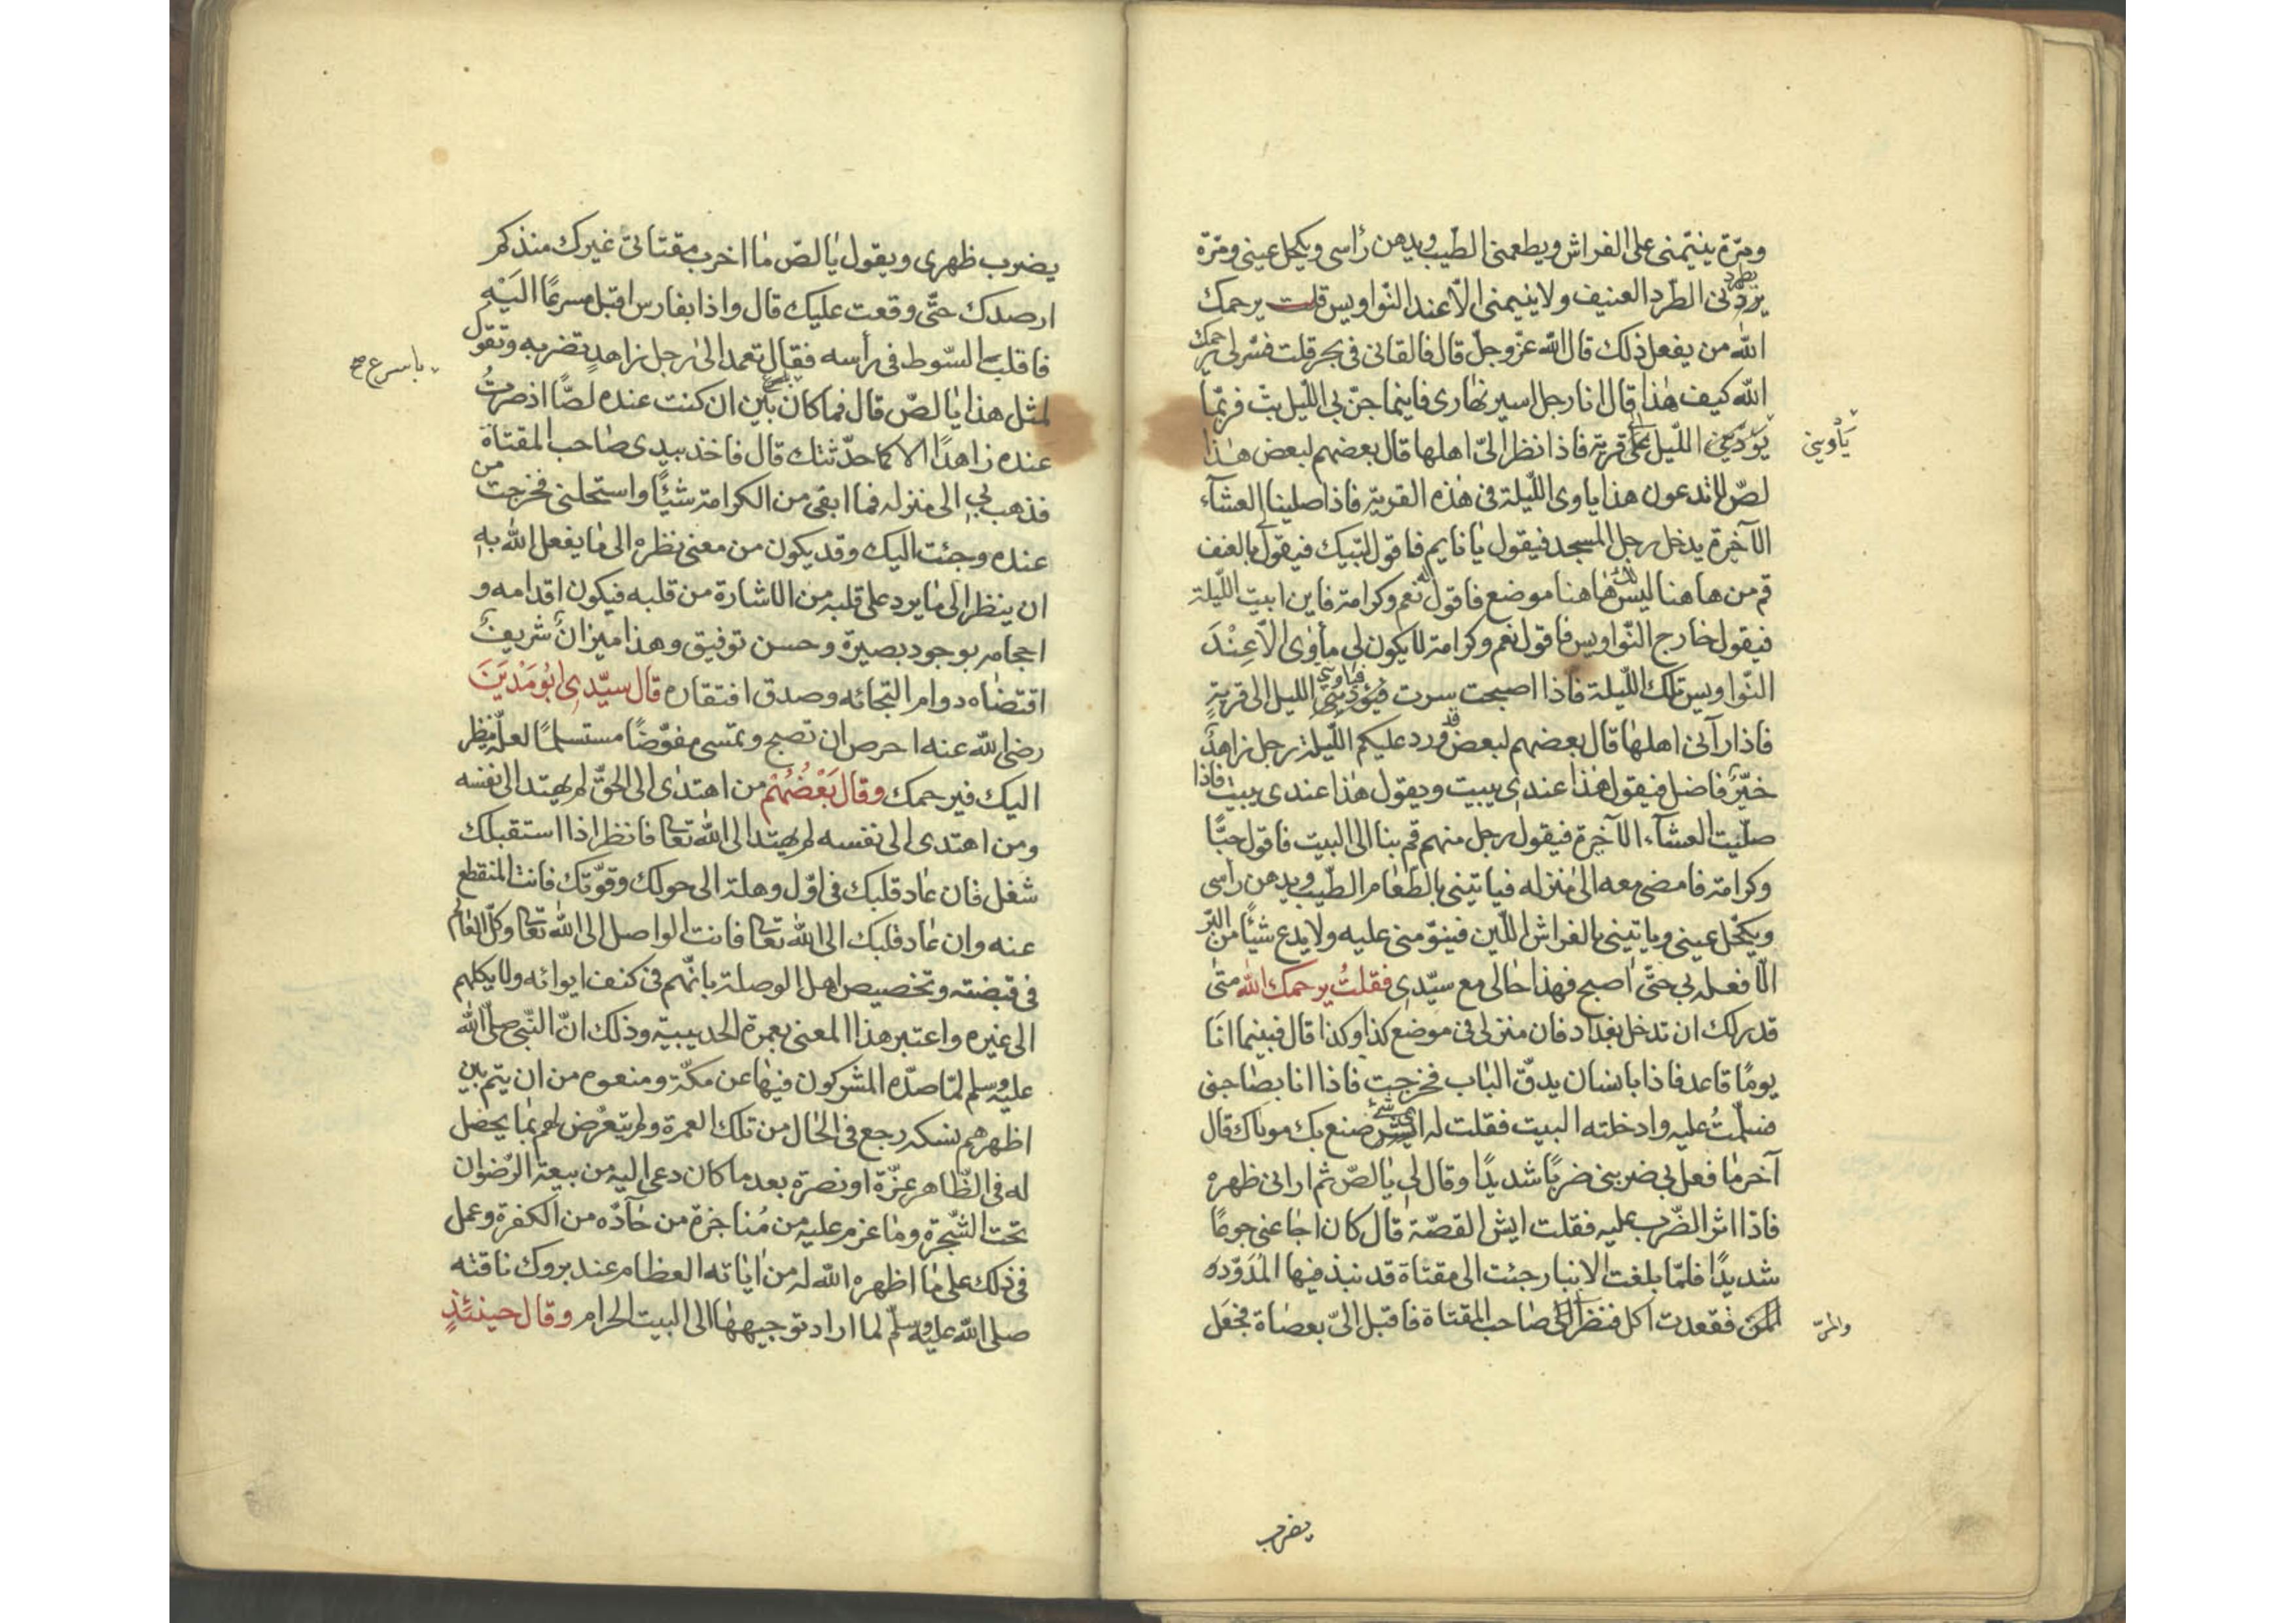 ومرّة ينيّمنى على الفراش ويطعمنى الطيب ويدهن رأسى ويكحل عينى ومرّة
يطردنى الطّرد العنيف ولا ينيمنى الّا عند النّواويس قلت يرحمك
اللّٰه من يفعل ذلك قال اللّٰه عزّ وجلّ قال فالقانى فى بحر قلت فسّر لى يرحمك
اللّٰه كيف هٰذا قال انا رجل اسير نهٰارى فاينما جنّ بى اللّيل بتّ فربّما
يؤدّينى اللّيل الى قرية فاذا نظر الىّ اهلها قال بعضهم لبعض هٰذا
يَأوينى
لصّ لا تدعون هذا ياوى اللّيلة فى هٰذه القرية فاذا صلينا العشآء
الآخرة يدخل رجل المسجد فيقول يٰا نايم فاقول لبّيك فيقول لى بالعنف
قم من هاهنا ليس لك هٰاهنا موضع فاقول له نعم وكرامة فاين ابيت اللّيلة
فيقول خارج النّواويس فاقول نعم وكرامة لا يكون لى مأوٰى الّا عِنْدَ
النّواويس تلك اللّيلة فاذا اصبحت سرت فيؤدّينى فياوينى الليل الى قريةٍ
فاذا رآنى اهلهٰا قال بعضهم لبعض قد ورد عليكم اللّيلة رجل زاهدٌ
خيّرٌ فاضل فيقول هٰذا عندى يبيت ويقول هٰذا عندى يبيت فاذا
صلّيت العشآء الآخرة فيقول رجل منهم قم بنا الى البيت فاقول حبًّا
وكرامة فامضى معه الى منزله فياتينى بالطّعٰام الطّيب ويدهن رأسى
ويكحّل عينى وياتينى بالفراش اللّين فينوّمنى عليه ولا يدع شيئًا من البّر
الّا فعله بى حتّى اصبح فهٰذا حٰالى مع سيّدى فقلتُ يرحمك اللّٰه متٰى
قدر لك ان تدخل بغداد فان منزلى فى موضع كذا وكذا قال فبينما انَا
يومًا قاعد فاذا بانسٰان يدقّ البٰاب فخرجت فاذا انا بصٰاحبى
فسلّمتُ عليه وادخلته البيت فقلت له اىّ شئ صنع بك مولاك قال
آخر مٰا فعل بى ضربنى ضربًا شديدًا وقال لى يٰا لصّ ثم ارانى ظهره
فاذا اثر الضّرب عليه فقلت ايش القصّة قال كان اجٰاعنى جوعًا
شديدًا فلمّا بلغت الانبار جئت الى مقثاة قد نبذ فيها المدَوّده
والمرّ فقعدت اكل فنظر الىّ صٰاحب المقثاة فاقبل الىّ بعصٰاة فجعَل
والمرّ
يضرب
يضرب ظهرى ويقول يٰا لصّ مٰا اخرب مقثاتى غيرك منذكم
ارصدك حتّى وقعت عليك قال واذا بفارس اقبل مسرعًا اليْه
فاقلب السّوط فى رأسه فقال تعمد الىٰ رجل زاهدٍ تضربه وتقول
لمثل هذا يٰا لصّ قال فما كان بين ان كنت عنده لصًّا اذ صرتُ
باسرع صح
عنده زاهدًا الا كما حدّثتك قال فاخذ بيدى صٰاحب المقثاة
فذهب بى الى منزله فما ابقى من الكرامة شيئًا واستحلنى فخرجت من
عنده وجئت اليك وقد يكون من معنى نظره الى مٰا يفعل اللّٰه به
ان ينظر الٰى مٰا يرد على قلبه من الاشارة من قلبه فيكون اقدامه و
احجامه بوجود بصيرة وحسن توفيق وهذا ميزانٌ شريفٌ
اقتضٰاه دوام التجائه وصدق افتقاره قال سيّدى ابُومَدْيَنَ
رضى اللّٰه عنه احرص ان تصبح وتمسى مفوّضًا مستسلمًا لعلّه ينظر
اليك فيرحمك وقال بَعْضُهُمْ من اهتدٰى الى الحقّ لم يهتد الى نفسه
ومن اهتدى الى نفسه لم يهتد الى اللّٰه تعٰا فانظر اذا استقبلك
شغل فان عٰاد قلبك فى اوّل وهلة الى حولك وقوّتك فانت المنقطع
عنه وان عٰاد قلبك الى اللّٰه تعٰا فانت الواصل الى اللّٰه تعٰا وكلّ العٰالم
فى قبضته وتخصيص اهل الوصلة بانّهم فى كنف ايوائه ولا يكلهم
الى غيره واعتبر هذا المعنى بعمرة الحديبيّة وذلك انّ النّبى صلّى اللّٰه
عليه وسلم لمّا صدّه المشركون فيهٰا عن مكّة ومنعوه من ان يتم بين
اظهرهم نسكه رجع فى الحٰال من تلك العمرة ولم يتعرّض لهم بمٰا يحصل
له فى الظّاهر عزّة او نصرة بعد ما كان دعى اليه من بيعة الرّضوان
تحت الشّجرة ومٰا عزم عليه من مُناجزة من حٰادّه من الكفرة وعمل
فى ذلك على مٰا اظهره اللّٰه له من اٰياته العظام عند بروك ناقته
صلى اللّٰه عليه وسلّم لما اراد توجيههٰا الى البيت الحرام وقال حينئذٍ